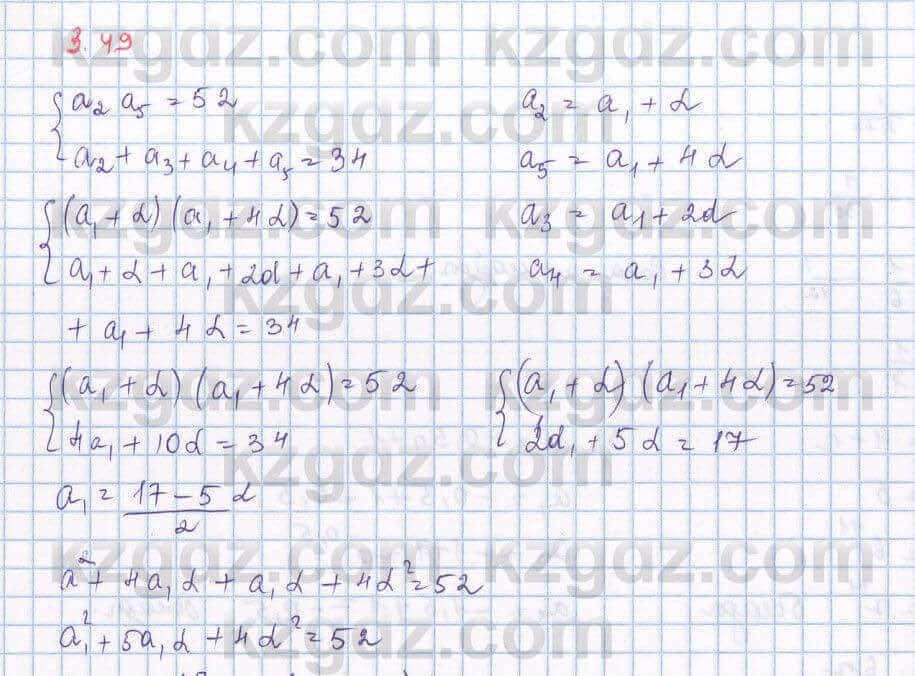 3.49
{ a₂ a₅ = 52    a₂ = a₁ + d
a₂ + a₃ + a₄ + a₅ = 34    a₅ = a₁ + 4d
{ (a₁ + d) (a₁ + 4d) = 52    a₃ = a₁ + 2d
a₁ + d + a₁ + 2d + a₁ + 3d +    a₄ = a₁ + 3d
+ a₁ + 4d = 34
{ (a₁ + d) (a₁ + 4d) = 52    { (a₁ + d) (a₁ + 4d) = 52
4a₁ + 10d = 34    2a₁ + 5d = 17
a₁ = (17 - 5d)/2
a² + 4a₁d + a₁d + 4d² = 52
a₁² + 5a₁d + 4d² = 52
kzgdz.com kzgdz.com
kzgdz.com
kzgdz.com kzgdz.com
kzgdz.com
kzgdz.com kzgdz.com
kzgdz.com
kzgdz.com kzgdz.com
kzgdz.com